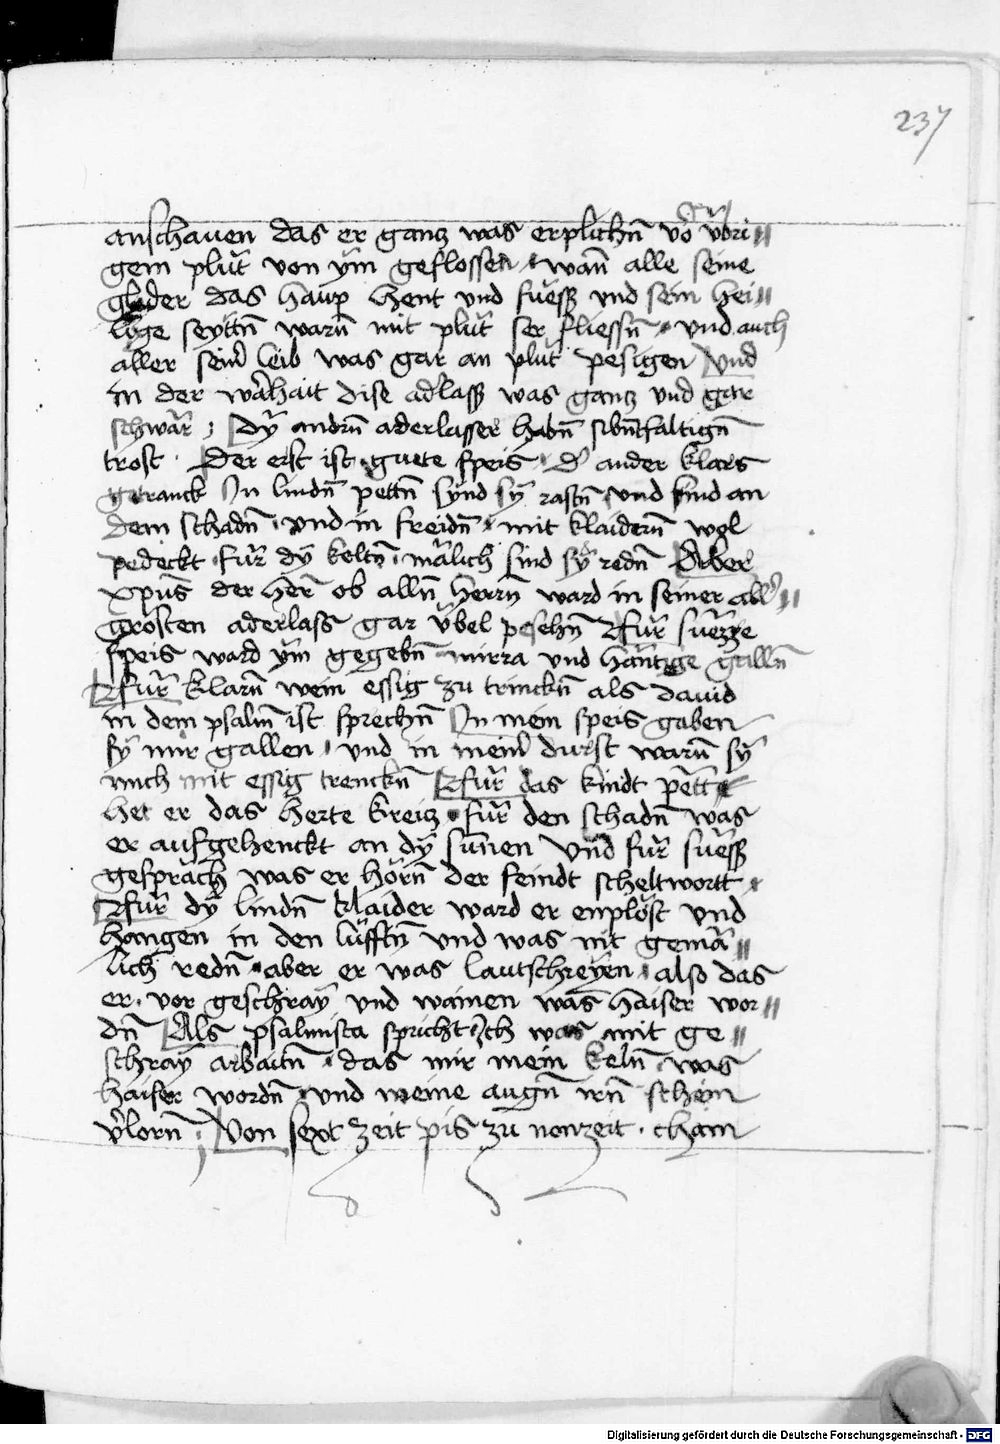 237
anschauen das er gantz was erplichn̄ vō v̈bri⸗
gem plüt von ÿm geflossen · wan̄ alle seine
glider das haup hent vnd füess vnd sein hei⸗
lige seyttn̄ warn̄ mit plüt ser fliessn̄ · vnd auch
aller sein leib was gar an plüt pesigen Vnd
in der warhait dise adlass was gantz vnd gar
schwär · Dÿ andrn̄ aderlasser habn̄ sibn̄tfaltign̄
trost · Der erst ist · guete speis · d' ander klars
getranck In lindn̄ pettn̄ sÿnd sÿ rastn̄ · vnd sind an
dem schadn̄ · vnd in freidn̄ · mit klaidern̄ wol
pedeckt · für dÿ keltn̄ · märlich sind sÿ redn̄ Aber
xpūs der her̄ ob alln̄ herrn̄ ward in seiner all'⸗
grosten aderlass gar v̈bel pesehn̄ Für süezze
speis ward ÿm gegebn̄ · mirra vnd häntige galln̄
Für klarn̄ wein essig zu trinckn̄ als dauid
in dem psalm̄ ist sprechn̄ In mein speis gaben
sÿ mir gallen · vnd in mein̄ durst warn̄ sÿ
mich mit essig trenckn̄ Für das lindt pett
het er das herte kreitz · für den schadn̄ was
er aufgehenckt an dÿ sun̄en Vnd für süess
gespräch was er hörn̄ der feindt scheltwortt ·
Für dÿ lindn̄ klaider ward er enplöst vnd
hangen in den lüfftn̄ vnd was nit gemä⸗
lich redn̄ · aber er was lautschreÿen · also das
er · vor geschraÿ vnd wainen was haiser wor⸗
dn̄ Als psalmista spricht Ich was mit ge⸗
schraÿ arbaitn̄ · das mir mein keln̄ · was
haiser wordn̄ · vnd meine augn̄ irn̄ schein
v'lorn̄ · Von sext zeit pis zu nonzeit · cham
Digitalisierung gefördert durch die Deutsche Forschungsgemeinschaft - DFG